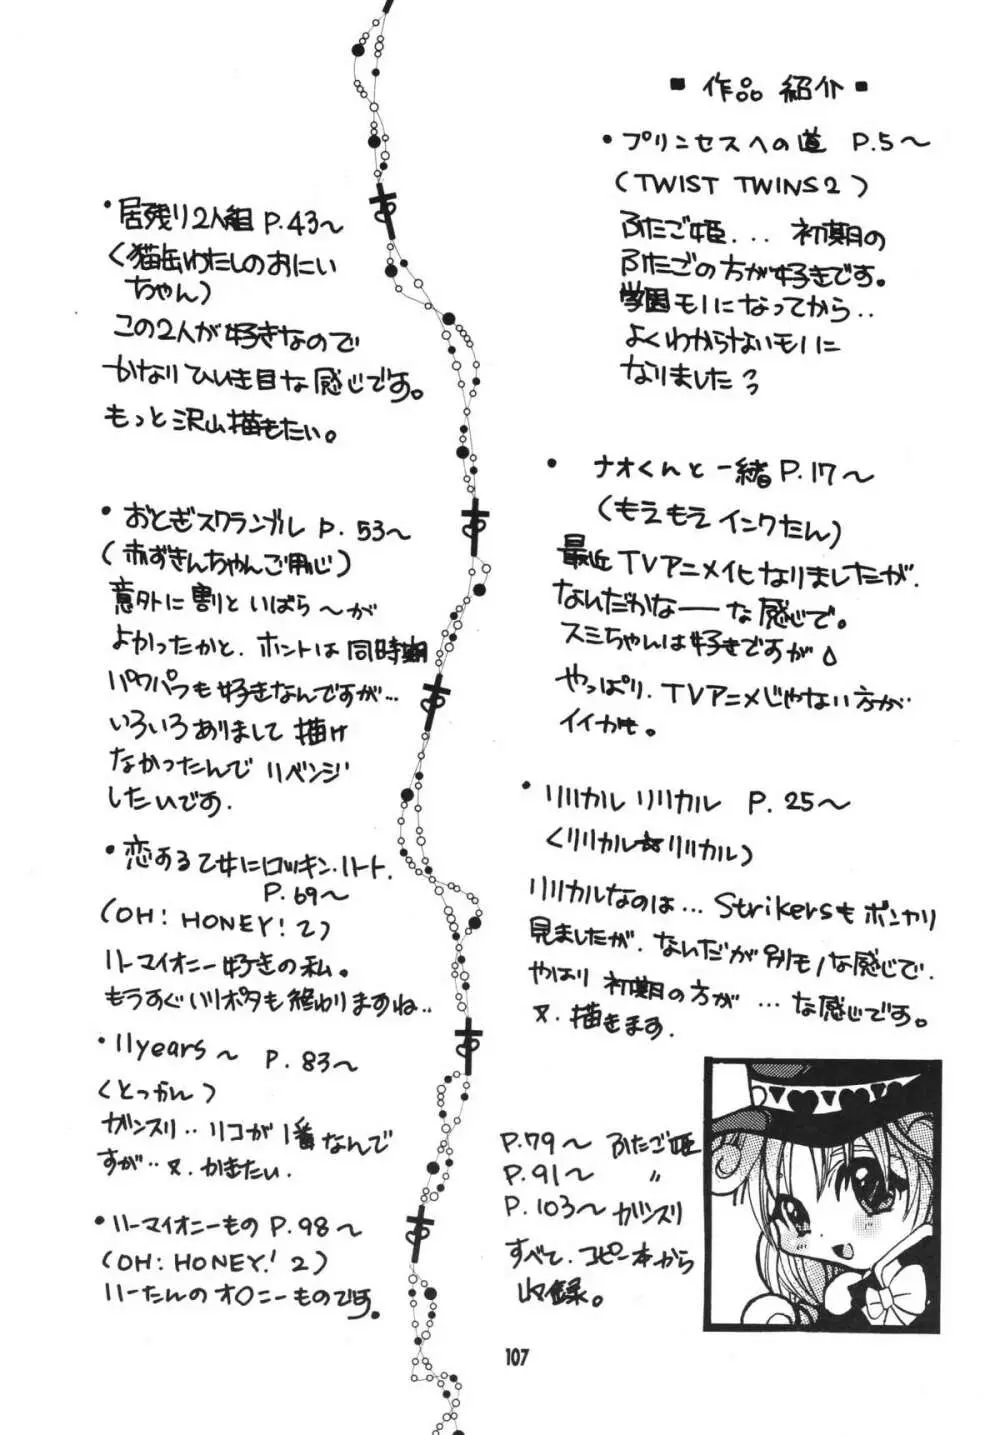 ■ 作品 紹介 ■
• プリンセスへの道 P.5〜
(TWIST TWINS2)
ふたご姫... 初期の
ふたごの方が好きです。
学園モノになってから..
よくわからないモノに
なりました
• ナオくんと一緒 P.17〜
(もえもえインクたん)
最近TVアニメイヒなりましたが.
なんだかなー な感じで。
スミちゃんは好きですが
やっぱり.TVアニメじゃない方が
イイかも。
• リリカル リリカル P. 25〜
(リリカル☆リリカル)
リリカルなのは... Strikersも ポンヤリ
見ましたが. なんだが別モノな感じで.
やはり 初期の方が ... な感じです。
又. 描きます.
P.79〜 ふたご姫
P.91〜 〃
P.103〜 ガンスリ
すべて. コピー本から
収録。
• 居残り2人組 P.43〜
(猫缶わたしのおにい
ちゃん)
この2人が好きなので
かなりひいき目な感じです。
もっと沢山描きたい。
• おとぎスクランブル P. 53〜
(赤ずきんちゃんご用心)
意外に割といばら〜が
よかったかと. ホントは同時期
パワパフも好きなんですが...
いろいろありまして 描け
なかったんで リベンジ
したいです.
• 恋する乙女にロッキン・ハート.
P.69〜
(OH! HONEY! 2)
ハーマイオニー好きの私。
もうすぐハリポタも終わりますね..
• 11years〜 P. 83〜
(とっかん)
ガンスリ.. リコが1番なんで
すが.. 又. かきたい.
• ハーマイオニーもの P.98〜
(OH! HONEY! 2)
ハーたんのオ○ニーものです。
107